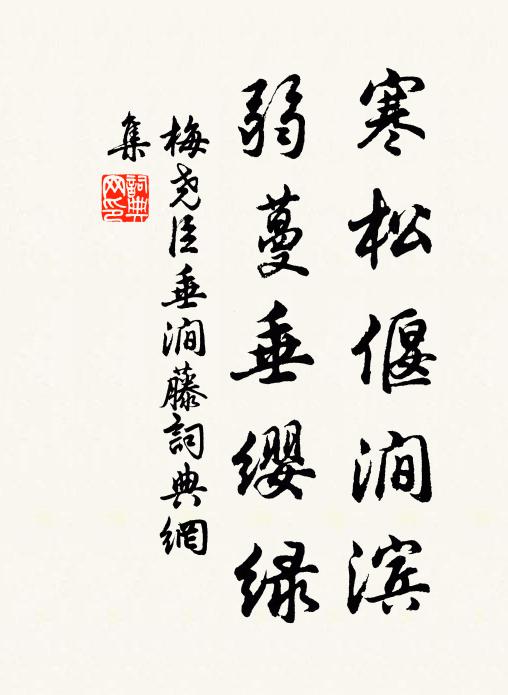 寒松偃涧滨
弱蔓垂缨绿
梅尧臣垂涧藤詞典網
集
詞典
网印